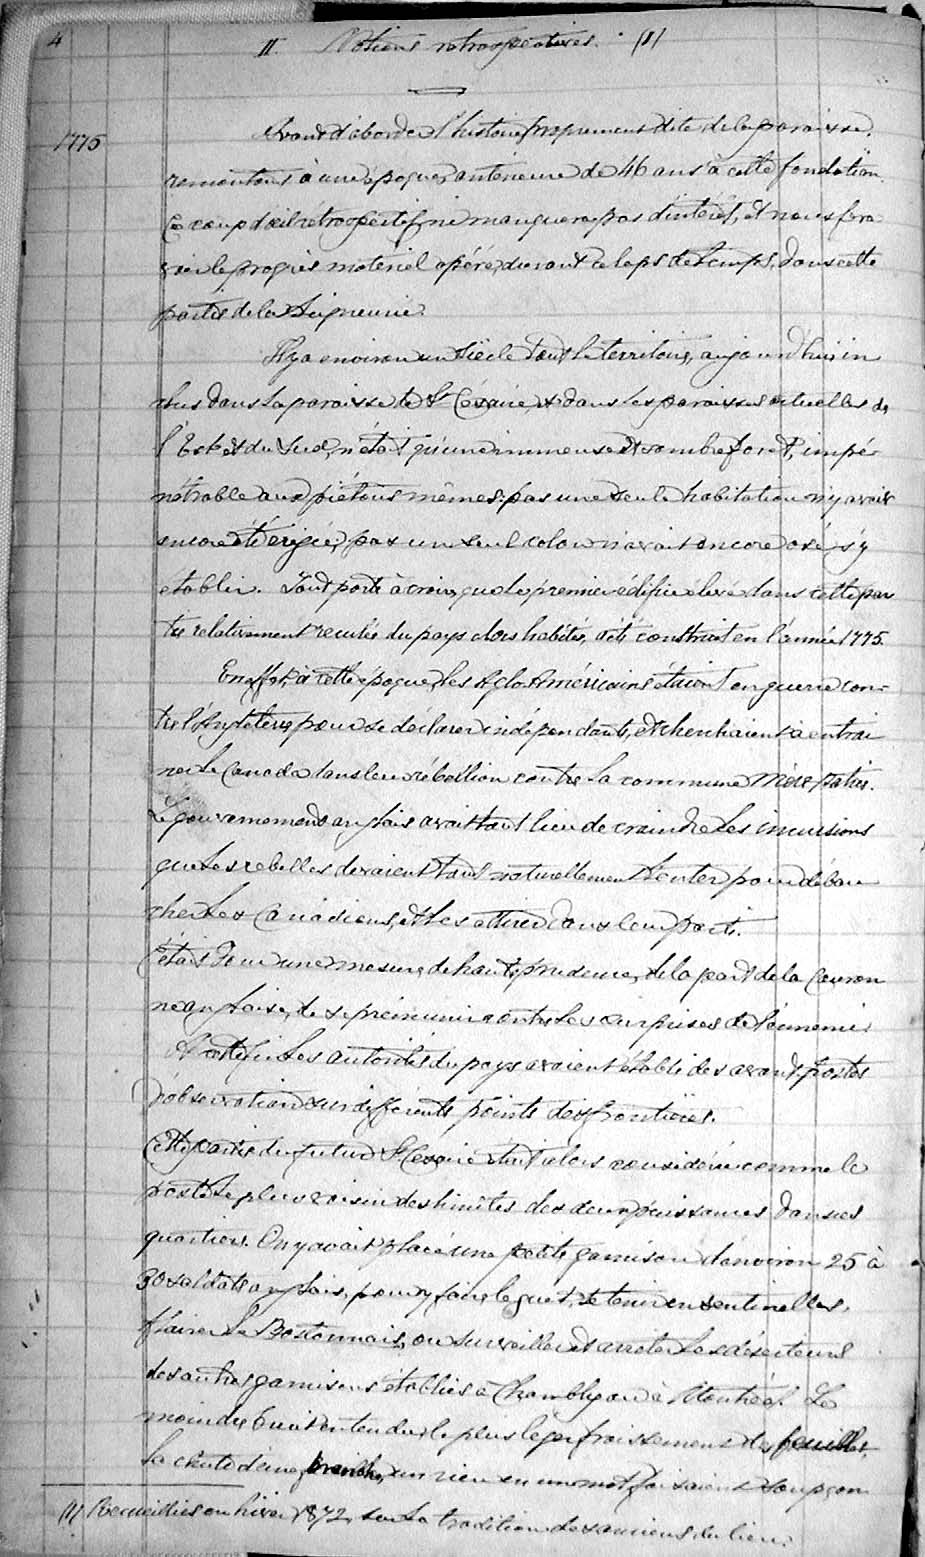 4
II. Notions rétrospectives. (1)
1775
Avant d'aborder l'histoire proprement dite de la paroisse,
remontons à une époque antérieure de 46 ans à cette fondation.
Ce coup d'œil rétrospectif ne manquera pas d'intérêt, et nous fera
voir le progrès matériel opéré, durant ce laps de temps, dans cette
partie de la Seigneurie.
Il y a environ un siècle tout le territoire, aujourd'hui in
clus dans la paroisse de St Césaire, et dans les paroisses actuelles de
l'Est et du Sud, n'était qu'une immense et sombre forêt, impé-
nétrable aux piétons mêmes: pas une seule habitation n'y avait
encore été érigée, pas un seul colon n'avait encore osé s'y
établir. Tout porte à croire que le premier édifice élevé dans cette par
tie relativement reculée du pays alors habitée, a été construit en l'année 1775.
En effet, à cette époque, les Aglo-Américains étaient en guerre con-
tre l'Angleterre, pour se déclarer indépendants, et cherchaient à entrai
ner le Canada dans leur rébellion contre la commune Mère-patrie.
Le gouvernement anglais avait tout lieu de craindre les incursions
que les rebelles devaient tout naturellement tenter pour débau
cher les Canadiens, et les attirer dans leur parti.
C'était donc une mesure de haute prudence, de la part de la Couron
ne anglaise, de se prémunir contre les surprises de l'ennemi.
A cette fin les autorités du pays avaient établi des avant-postes
d'observation sur différents points des frontières.
Cette partie du futur St Césaire était alors considérée comme le
poste le plus voisin des limites des deux puissances dans ces
quartiers. On y avait placé une petite garnison d'environ 25 à
30 soldats anglais, pour y faire le guet, se tenir en sentinelles,
flairer le Bostonnais, ou surveiller et arrêter les déserteurs
des autres garnisons établies à Chambly ou à Montréal. Le
moindre bruit entendu, le plus léger froissement des feuilles,
la chute d'une branche, un rien en un mot, faisaient soupçon
(1) Recueillies en hiver 1872, sur la tradition des anciens du lieu.